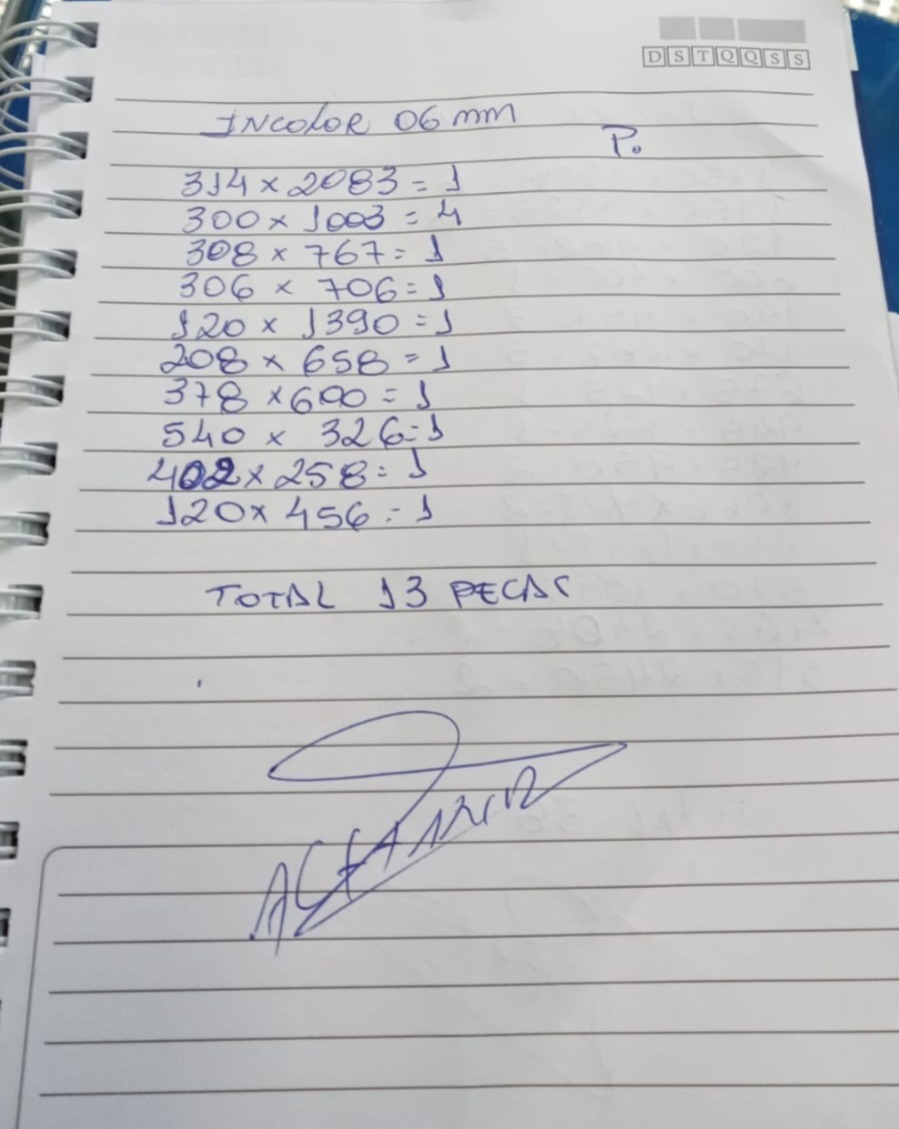 D S T Q Q S S
INCOLOR 06 mm
P.
314 x 2083 = 1
300 x 1003 = 4
308 x 767 = 1
306 x 706 = 1
120 x 1390 = 1
208 x 658 = 1
378 x 600 = 1
540 x 326 = 1
402 x 258 = 1
120 x 456 = 1
TOTAL 13 PECAS